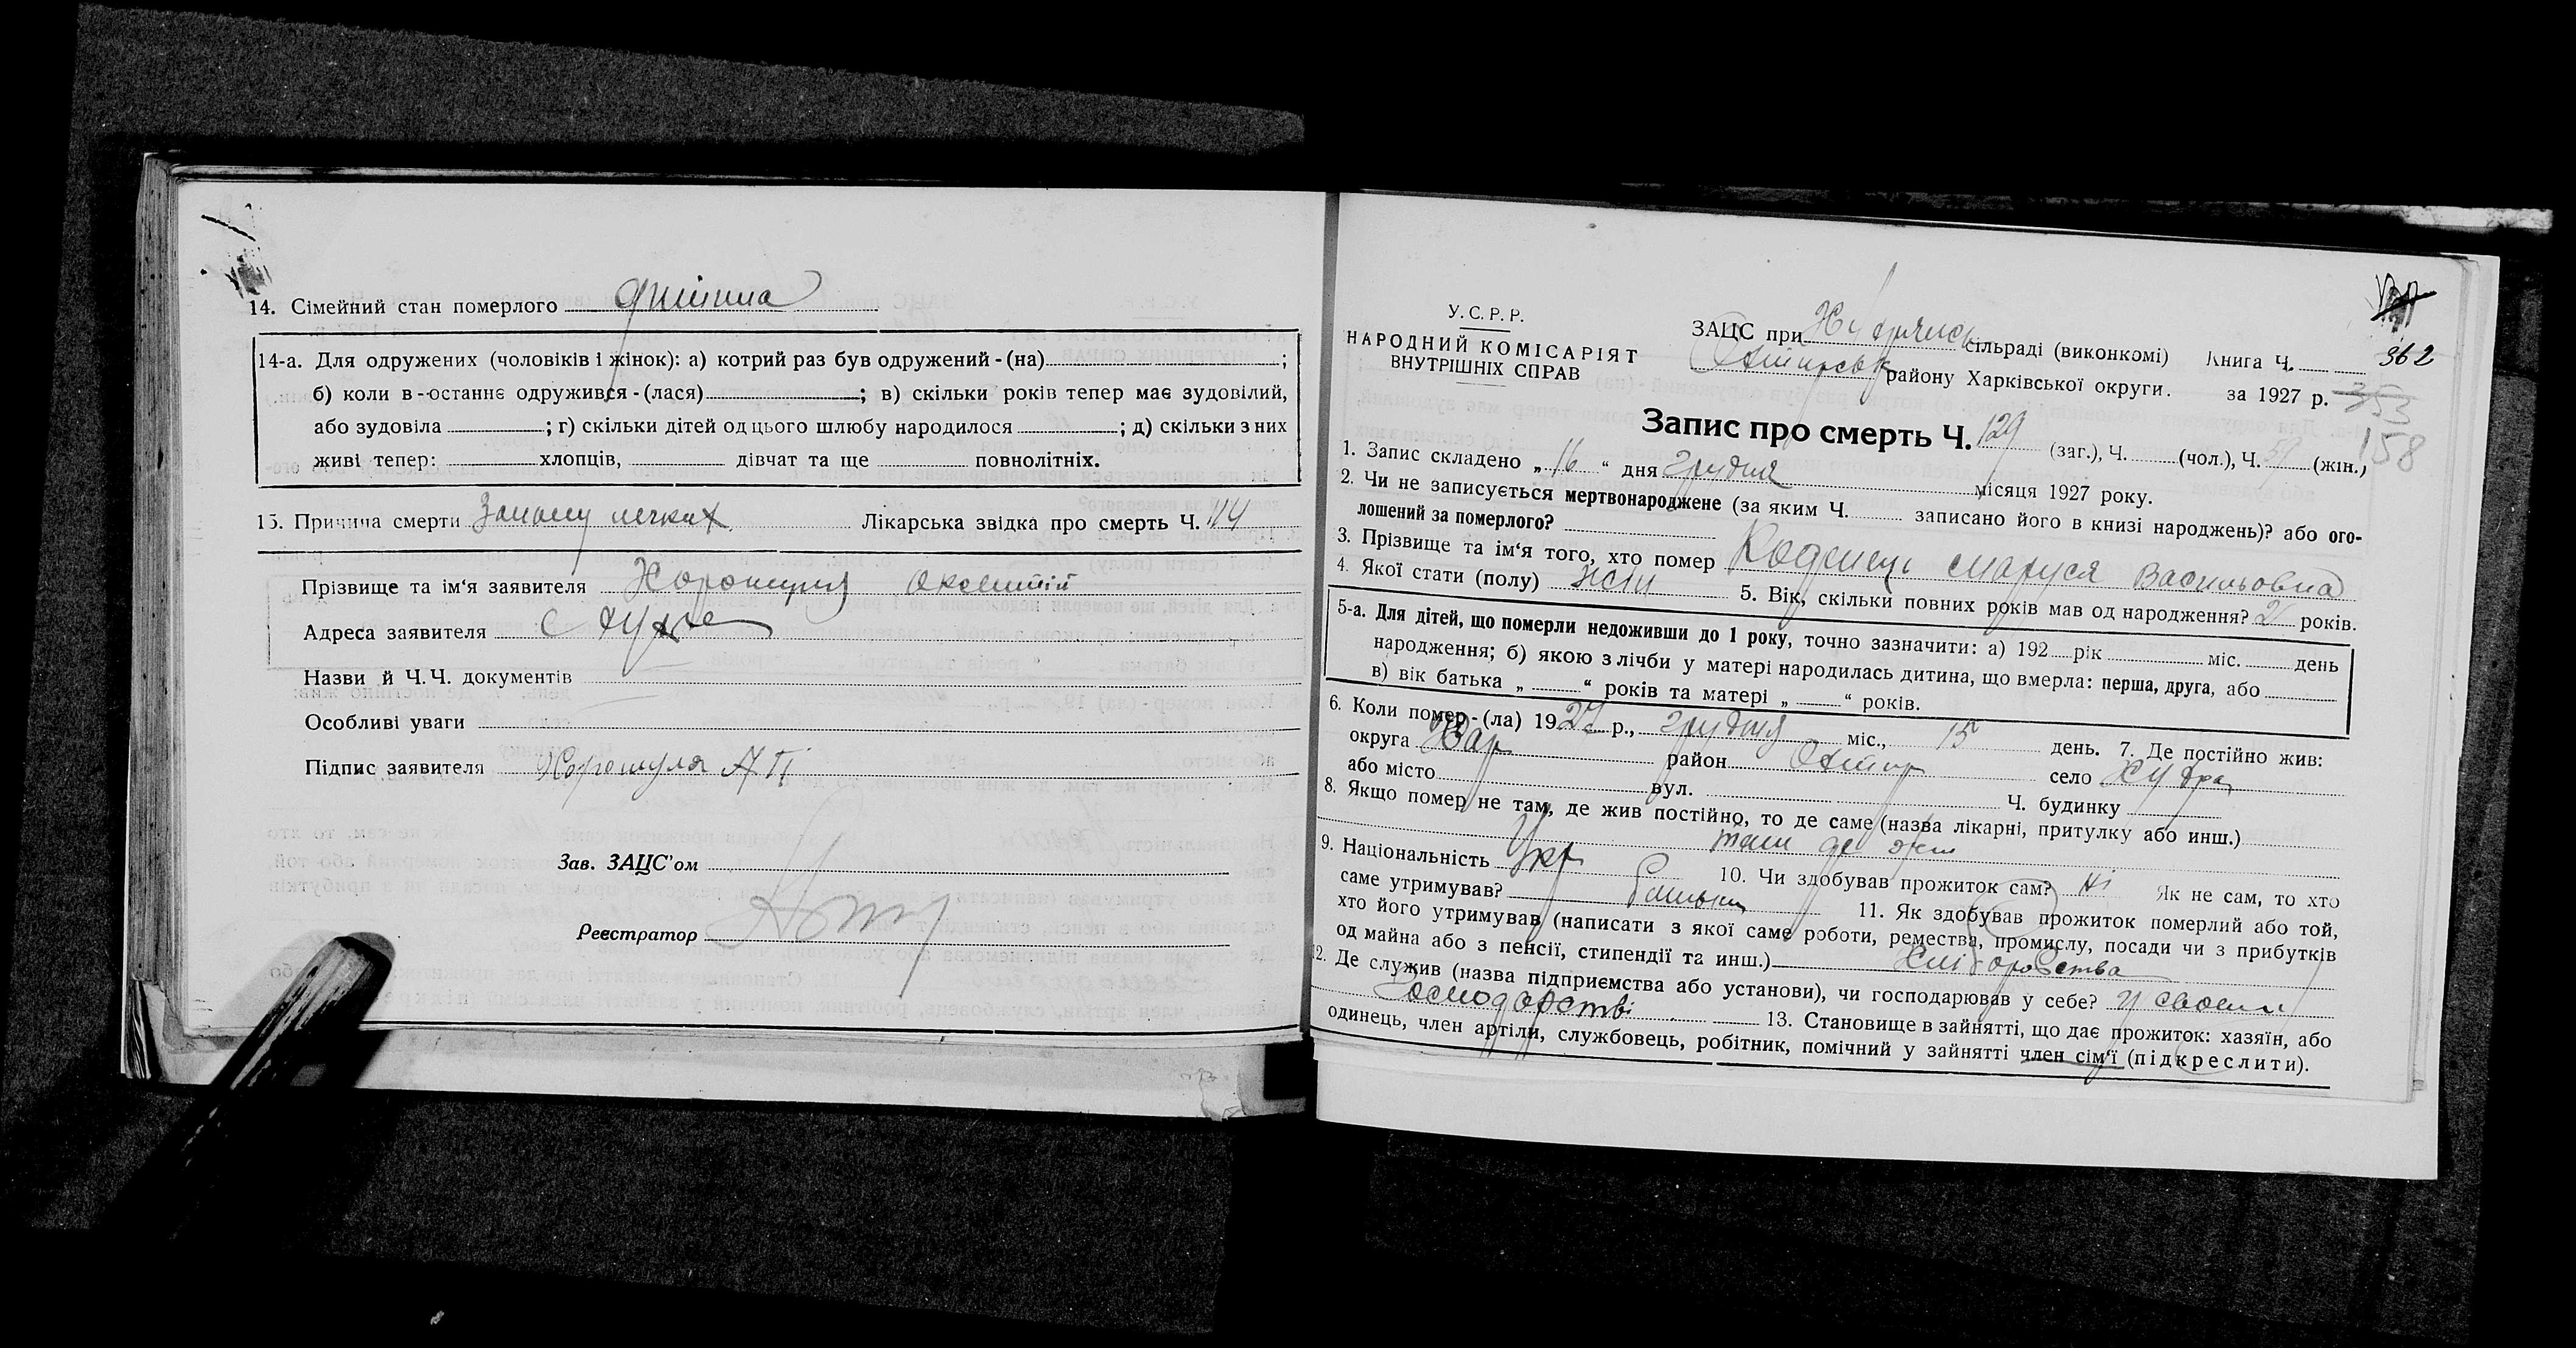 14. Сімейний стан померлого дитина
14-а. Для одружених (чоловіків і жінок): а) котрий раз був одружений - (на) ;
б) коли в-останнє одружився - (лася) ; в) скільки років тепер має зудовілий,
або зудовіла ; г) скільки дітей од цього шлюбу народилося ; д) скільки з них
живі тепер: хлопців, дівчат та ще повнолітніх.
15. Причина смерти легких Лікарська звідка про смерть Ч. 114
Прізвище та ім'я заявителя
Адреса заявителя с
Назви й Ч.Ч. документів
Особливі уваги
Підпис заявителя
Зав. ЗАЦС'ом
Реєстратор
У.С.Р.Р.
НАРОДНИЙ КОМІСАРІЯТ
ВНУТРІШНІХ СПРАВ
ЗАЦС при сільраді (виконкомі) Книга Ч. 362
району Харківської округи. за 1927 р. 353
158
Запис про смерть Ч. 129 (заг.), Ч. (чол.), Ч. (жін.)
1. Запис складено „16“ дня грудня місяця 1927 року.
2. Чи не записується мертвонароджене (за яким Ч. записано його в книзі народжень)? або ого-
лошений за померлого?
3. Прізвище та ім'я того, хто помер Маруся Васильовна
4. Якої стати (полу) жін 5. Вік, скільки повних років мав од народження? 2 років.
5-а. Для дітей, що померли недоживши до 1 року, точно зазначити: а) 192 рік міс. день
народження; б) якою з лічби у матері народилась дитина, що вмерла: перша, друга, або
в) вік батька „ “ років та матері „ “ років.
6. Коли помер - (ла) 1927 р., грудня міс., 15 день. 7. Де постійно жив:
округа Хар район Охтир село
або місто вул. Ч. будинку
8. Якщо помер не там, де жив постійно, то де саме (назва лікарні, притулку або инш.)
там де жив
9. Національність Укр 10. Чи здобував прожиток сам? ні Як не сам, то хто
саме утримував? батько 11. Як здобував прожиток померлий або той,
хто його утримував (написати з якої саме роботи, ремества, промислу, посади чи з прибутків
од майна або з пенсії, стипендії та инш.) хліборобства
12. Де служив (назва підприємства або установи), чи господарював у себе? у своем
Господарстві 13. Становище в зайнятті, що дає прожиток: хазяїн, або
одинець, член артіли, службовець, робітник, помічний у зайнятті член сім'ї (підкреслити).